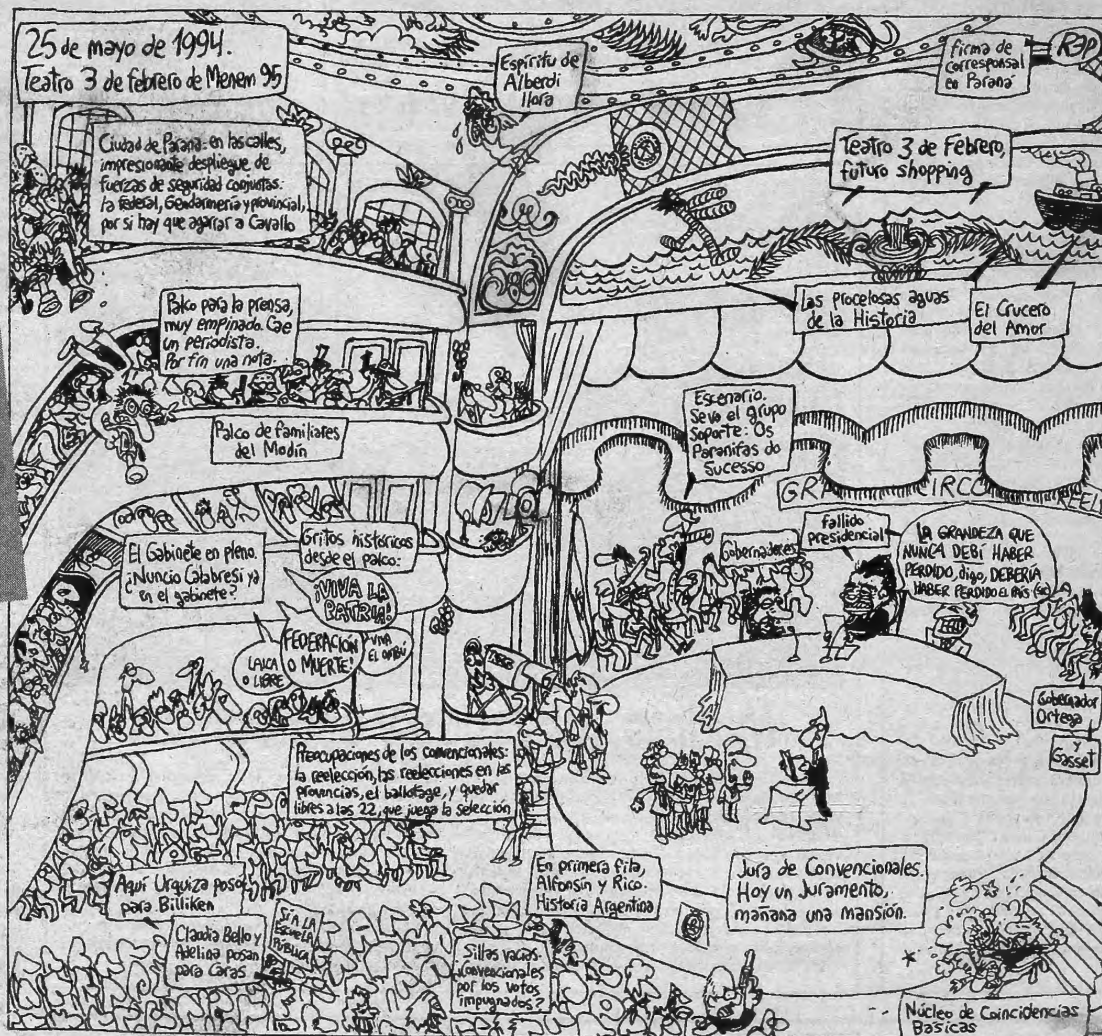 25 de mayo de 1994.
Teatro 3 de febrero de Menem 95
Espíritu de
Alberdi
llora
firma de
corresponsal
en Paraná
REP
Ciudad de Paraná: en las calles,
impresionante despliegue de
fuerzas de seguridad conjuntas:
la federal, Gendarmería y provincial,
por si hay que agarrar a Cavallo
Teatro 3 de Febrero,
futuro shopping
Palco para la prensa,
muy empinado. Cae
un periodista.
Por fin una nota.
Las procelosas aguas
de la Historia
El Crucero
del Amor
Palco de familiares
del Modín
Escenario.
Se va el grupo
soporte: Os
Paranifas do
Sucesso
GRA CIRCO REELE
El Gabinete en pleno.
¿Nuncio Calabresi ya
en el gabinete?
Gritos históricos
desde el palco:
¡VIVA LA
PATRIA!
FEDERACIÓN
O MUERTE!
LAICA
O LIBRE
VIVA
EL OMBÚ
Gobernadores
fallido
presidencial
LA GRANDEZA QUE
NUNCA DEBÍ HABER
PERDIDO, digo, DEBERÍA
HABER PERDIDO EL PAÍS (sic)
Gobernador
Ortega
y
Gasset
Preocupaciones de los convencionales:
la reelección, las reelecciones en las
provincias, el ballotage, y quedar
libres a las 22, que juega la selección
Aquí Urquiza posó
para Billiken
Claudia Bello y
Adelina posan
para Caras
SÍ A LA
ESCUELA
PÚBLICA
En primera fila,
Alfonsín y Rico.
Historia Argentina
Jura de Convencionales.
Hoy un Juramento,
mañana una mansión.
Sillas vacías:
¿convencionales
por los votos
impugnados?
Núcleo de Coincidencias
Básicas